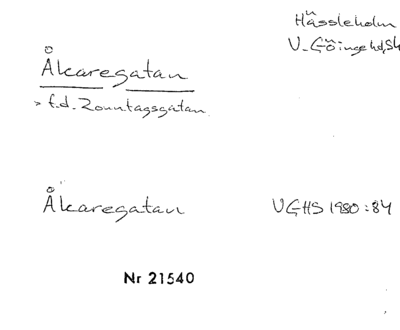 Hässleholm
V. Göinge hd, Sk
Åkaregatan
> f.d. Zonntagsgatan
Åkaregatan
VGHS 1980:84
Nr 21540